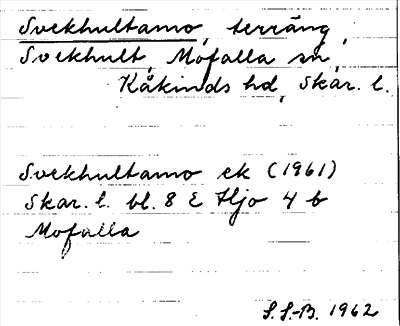 Svekhultamo, terräng,
Svekhult, Mofalla sn,
Kåkinds hd, Skar. l.
Svekhultamo ek (1961)
Skar. l. bl. 8 E Hjo 4 b
Mofalla
S.S.-B. 1962